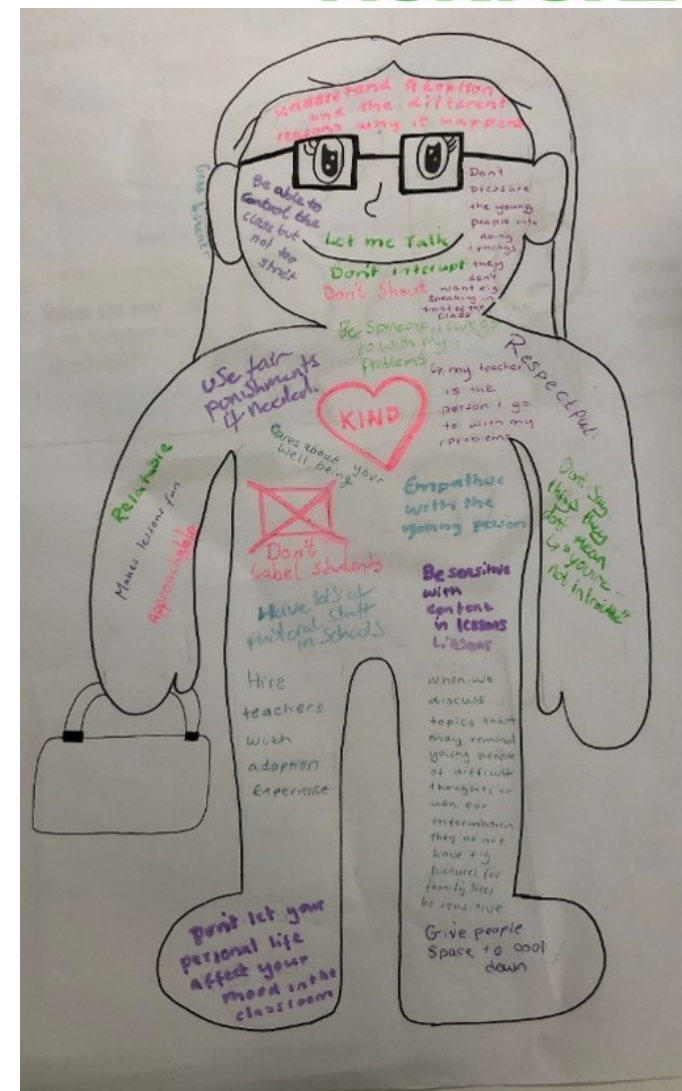 understand Adoption
and the different
reasons why it happens
Be able to
control the
class but
not too
strict
Don't
pressure
the young
people into
doing
things
they
don't
want eg
speaking in
front of the
class
Let me Talk
Don't interupt
Don't Shout
Be Someone i can go
to with my
problems
↳ my teacher
is the
person i go
to with my
problems
Respectful.
use fair
punishments
if needed.
KIND
Cares about your
well being
Relatable
Makes lessons fun
Approachable
Empathise
with the
young person
Don't Say
things they
don't mean
↳ "you're...
not in trouble"
Don't
Label Students
Be sensitive
with
content
in lessons
Have lots of
pastoral staff
in Schools
Hire
teachers
with
adoption
Experience
when we
discuss
topics that
may remind
young people
of difficult
thoughts or
ask for
information
they do not
have eg
pictures for
family trees
be sensitive
Give people
Space to cool
down
Don't let your
personal life
affect your
mood in the
classroom